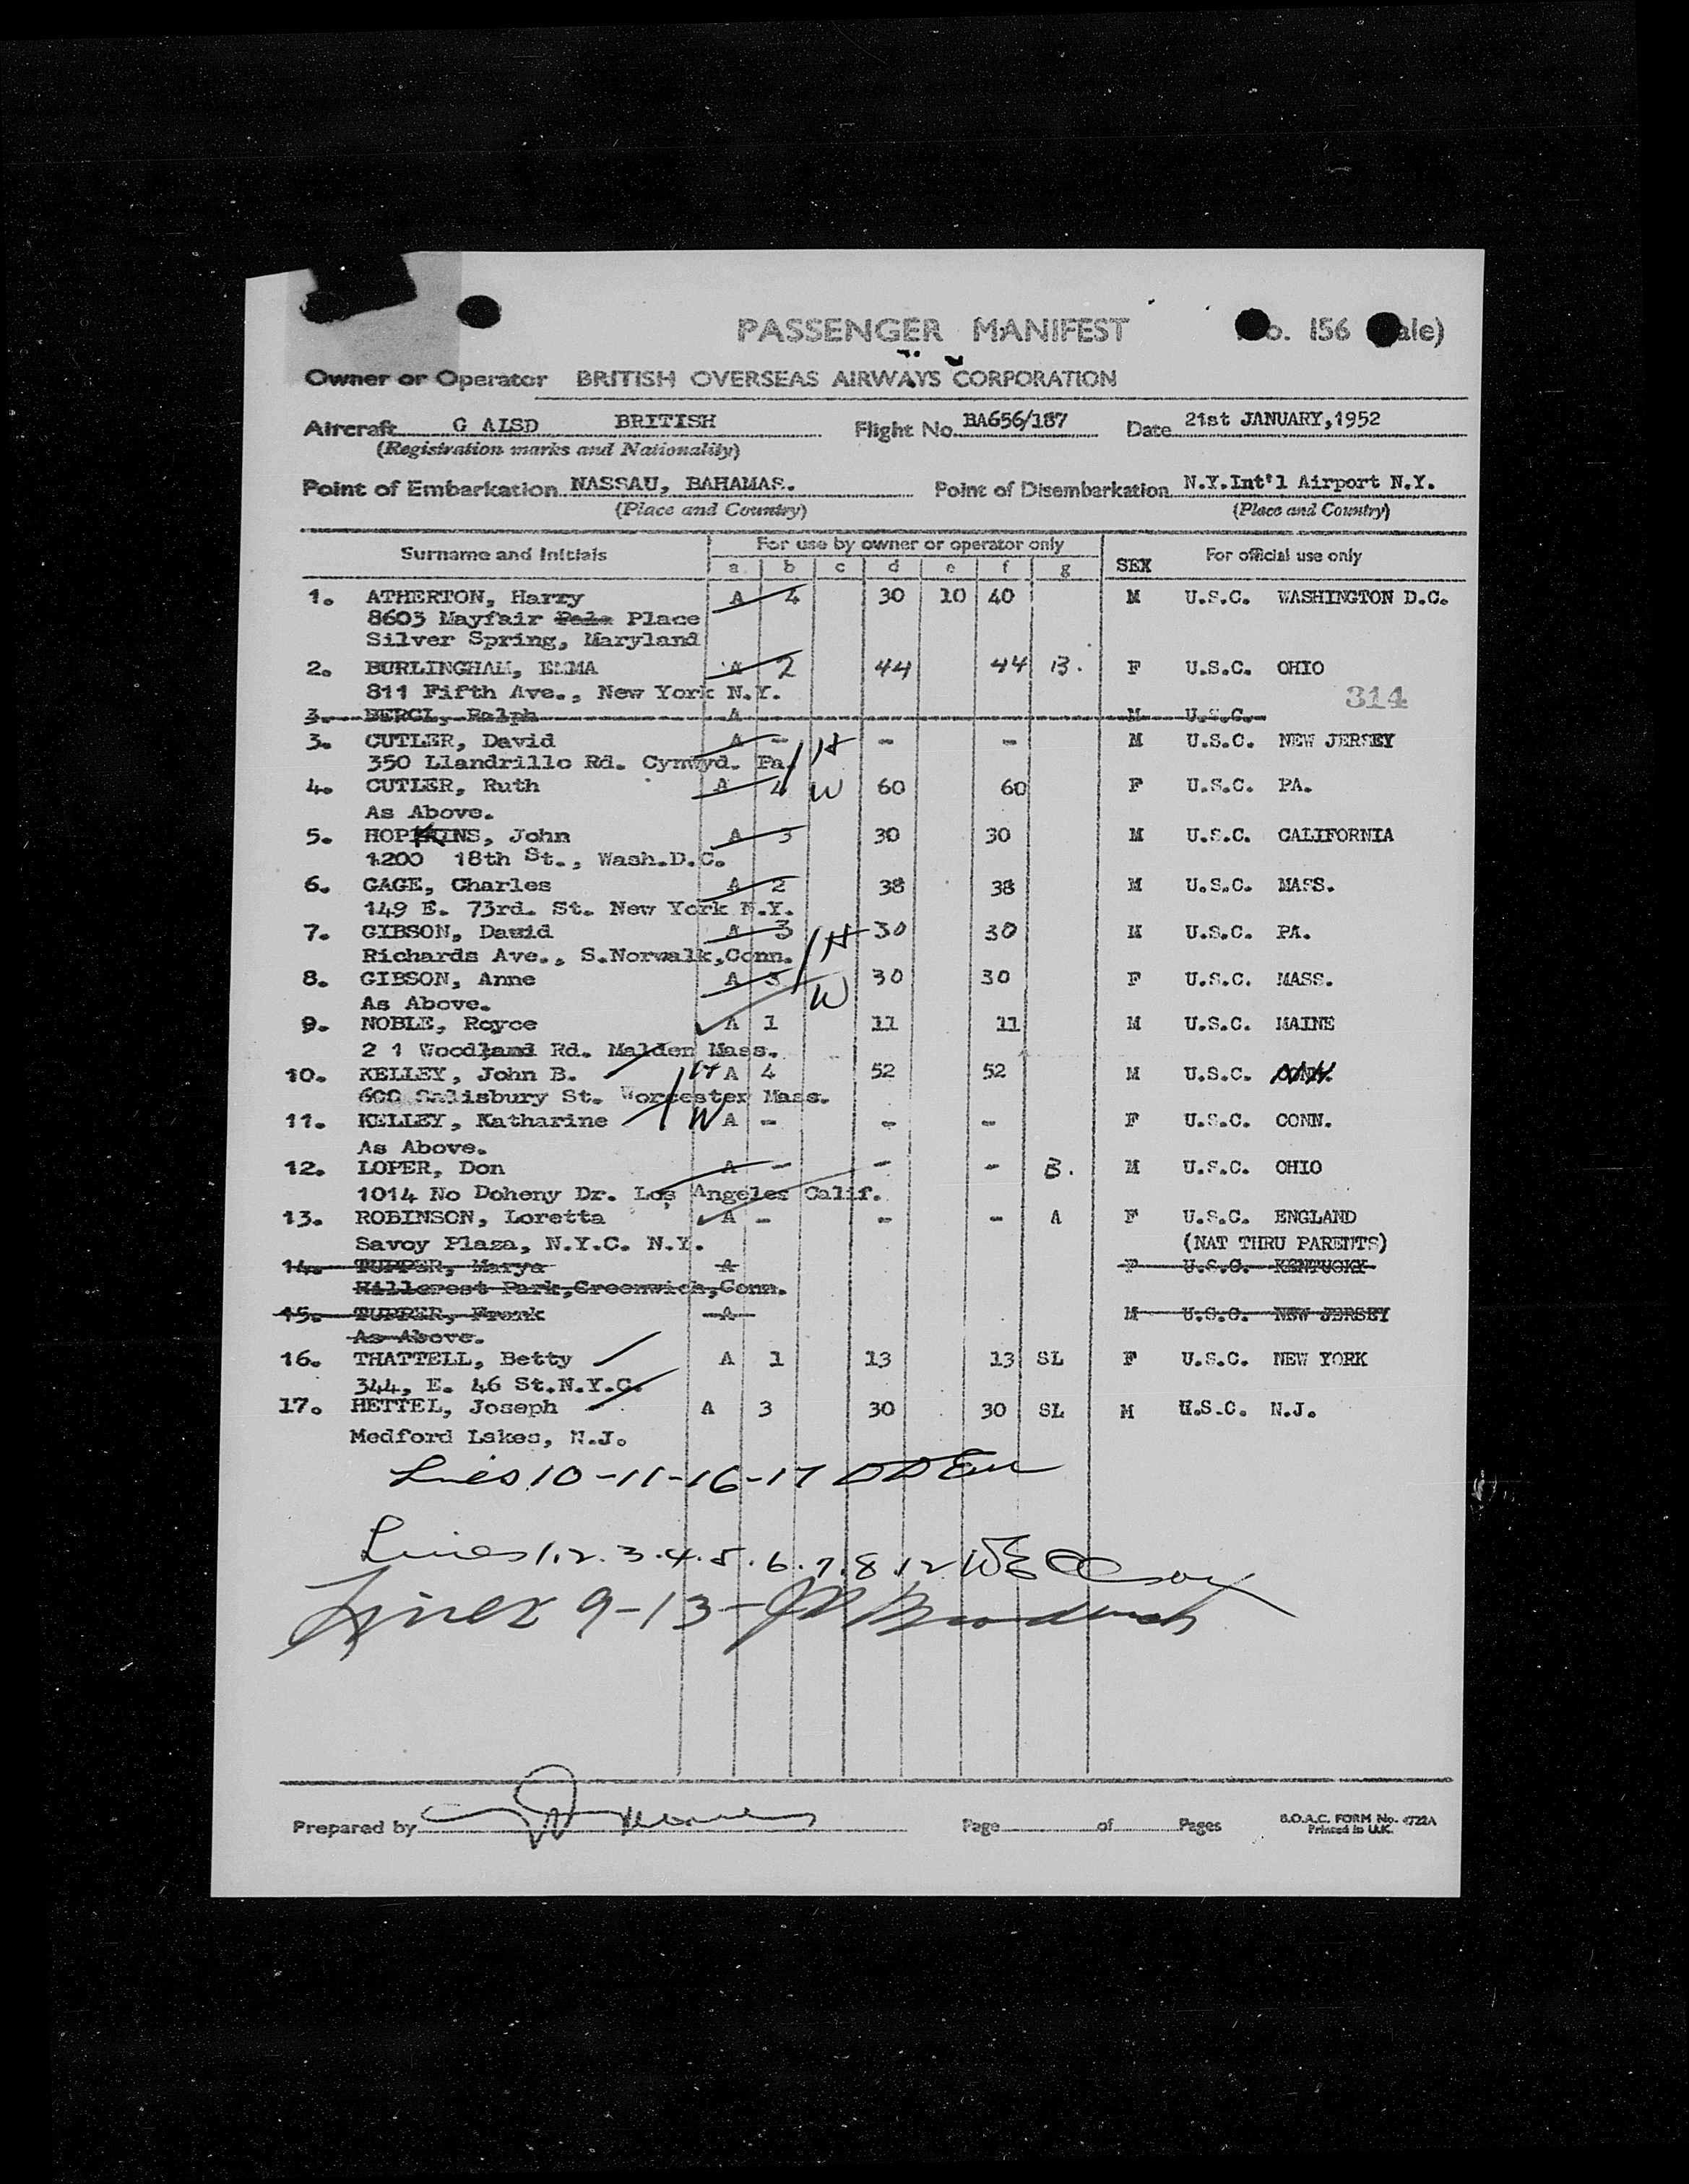 PASSENGER MANIFEST
o. 156 ale)
Owner or Operator BRITISH OVERSEAS AIRWAYS CORPORATION
Aircraft G ALSD BRITISH Flight No. BA656/187 Date 21st JANUARY, 1952
(Registration marks and Nationality)
Point of Embarkation NASSAU, BAHAMAS. Point of Disembarkation N.Y.Int'l Airport N.Y.
(Place and Country) (Place and Country)
Surname and Initials For use by owner or operator only SEX For official use only
a b c d e f g
1. ATHERTON, Harry A 4 30 10 40 M U.S.C. WASHINGTON D.C.
8603 Mayfair Place
Silver Spring, Maryland
2. BURLINGHAM, EMMA A 2 44 44 B. F U.S.C. OHIO
811 Fifth Ave., New York N.Y.
314
3. BERCI, Ralph A M U.S.C.
3. CUTLER, David A - H - - M U.S.C. NEW JERSEY
350 Llandrillo Rd. Cynwyd. Pa.
4. CUTLER, Ruth A 4 W 60 60 F U.S.C. PA.
As Above.
5. HOPKINS, John A 3 30 30 M U.S.C. CALIFORNIA
1200 18th St., Wash.D.C.
6. GAGE, Charles A 2 38 38 M U.S.C. MASS.
149 E. 73rd. St. New York N.Y.
7. GIBSON, David A 3 H 30 30 M U.S.C. PA.
Richards Ave., S.Norwalk,Conn.
8. GIBSON, Anne A 3 W 30 30 F U.S.C. MASS.
As Above.
9. NOBLE, Royce A 1 11 11 M U.S.C. MAINE
2 1 Woodland Rd. Malden Mass.
10. KELLEY, John B. H A 4 52 52 M U.S.C.
600 Salisbury St. Worcester Mass.
11. KELLEY, Katharine W A - - - F U.S.C. CONN.
As Above.
12. LOPER, Don A - - - B. M U.S.C. OHIO
1014 No Doheny Dr. Los Angeles Calif.
13. ROBINSON, Loretta A - - - A F U.S.C. ENGLAND
Savoy Plaza, N.Y.C. N.Y. (NAT THRU PARENTS)
14. TUPPER, Marye A F U.S.C. KENTUCKY
Hillcrest Park,Greenwich,Conn.
15. TUPPER, Frank A M U.S.C. NEW JERSEY
As Above.
16. THATTELL, Betty A 1 13 13 SL F U.S.C. NEW YORK
344, E. 46 St.N.Y.C.
17. HETTEL, Joseph A 3 30 30 SL M U.S.C. N.J.
Medford Lakes, N.J.
Lines 10-11-16-17
Lines 1.2.3.4.5.6.7.8.12
Lines 9-13-
Prepared by Page of Pages B.O.A.C. FORM No. 4722A
Printed in U.K.